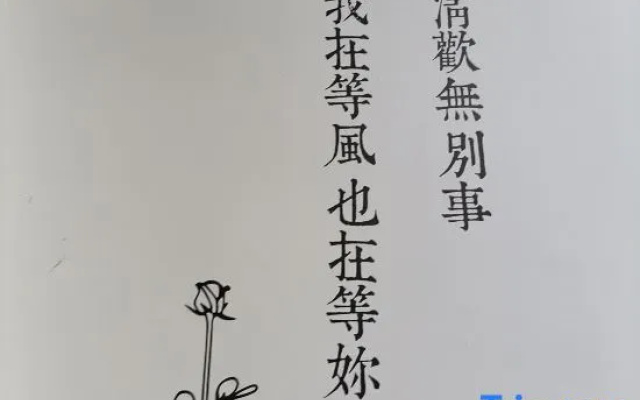 清歡無別事
我在等風也在等妳